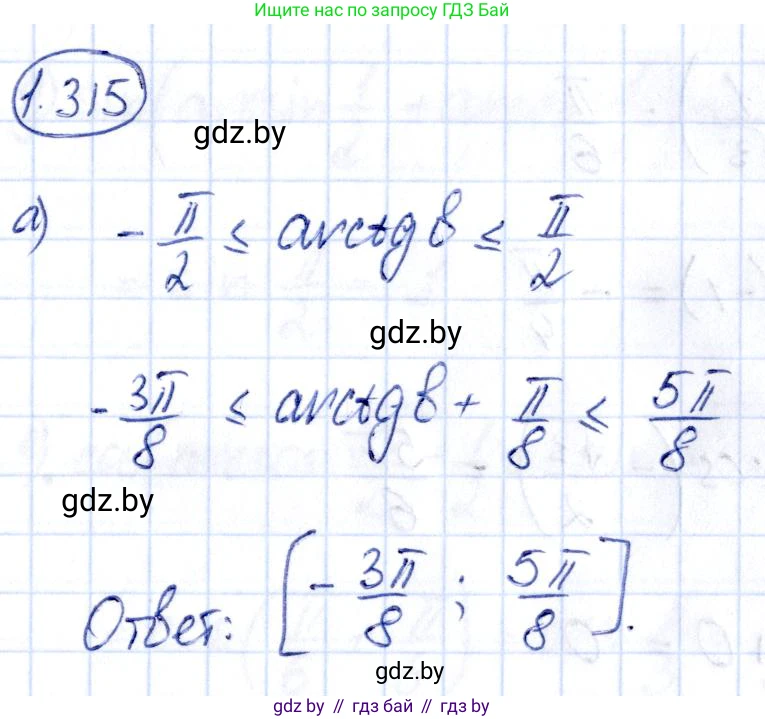 Ищите нас по запросу ГДЗ Бай
1.315
gdz.by
а) -π/2 ≤ arctg b ≤ π/2
gdz.by
-3π/8 ≤ arctg b + π/8 ≤ 5π/8
gdz.by
Ответ: [-3π/8; 5π/8].
gdz.by
gdz.by // гдз бай // gdz.by